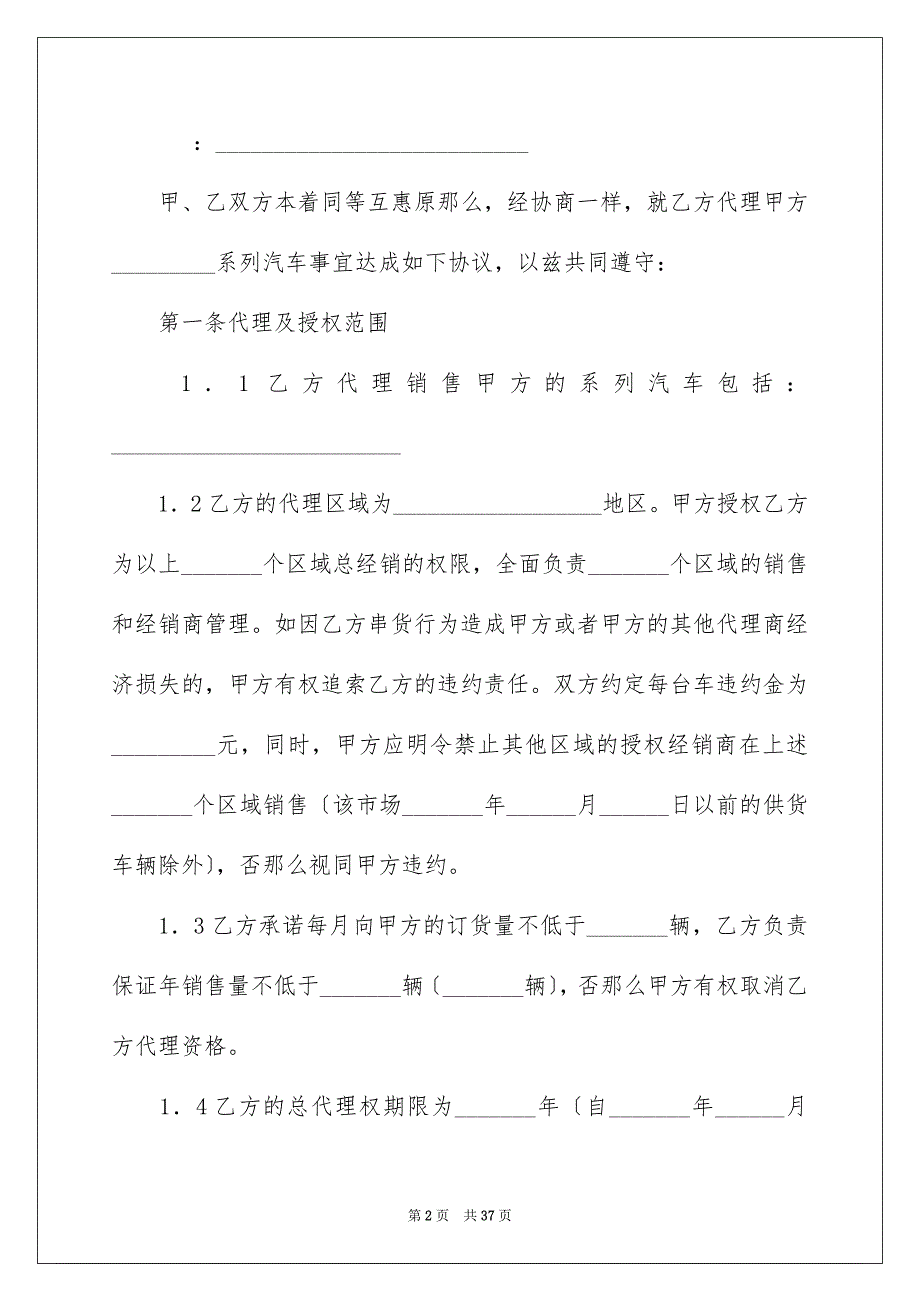 ：___________________________
甲、乙双方本着同等互惠原那么，经协商一样，就乙方代理甲方
_________系列汽车事宜达成如下协议，以兹共同遵守：
第一条代理及授权范围
1．1乙方代理销售甲方的系列汽车包括：
_________________________
1．2乙方的代理区域为__________________地区。甲方授权乙方
为以上_______个区域总经销的权限，全面负责_______个区域的销售
和经销商管理。如因乙方串货行为造成甲方或者甲方的其他代理商经
济损失的，甲方有权追索乙方的违约责任。双方约定每台车违约金为
_________元，同时，甲方应明令禁止其他区域的授权经销商在上述
_______个区域销售〔该市场_______年______月______日以前的供货
车辆除外〕，否那么视同甲方违约。
1．3乙方承诺每月向甲方的订货量不低于_______辆，乙方负责
保证年销售量不低于_______辆〔_______辆〕，否那么甲方有权取消乙
方代理资格。
1．4乙方的总代理权期限为_______年〔自_______年______月
第2页 共37页